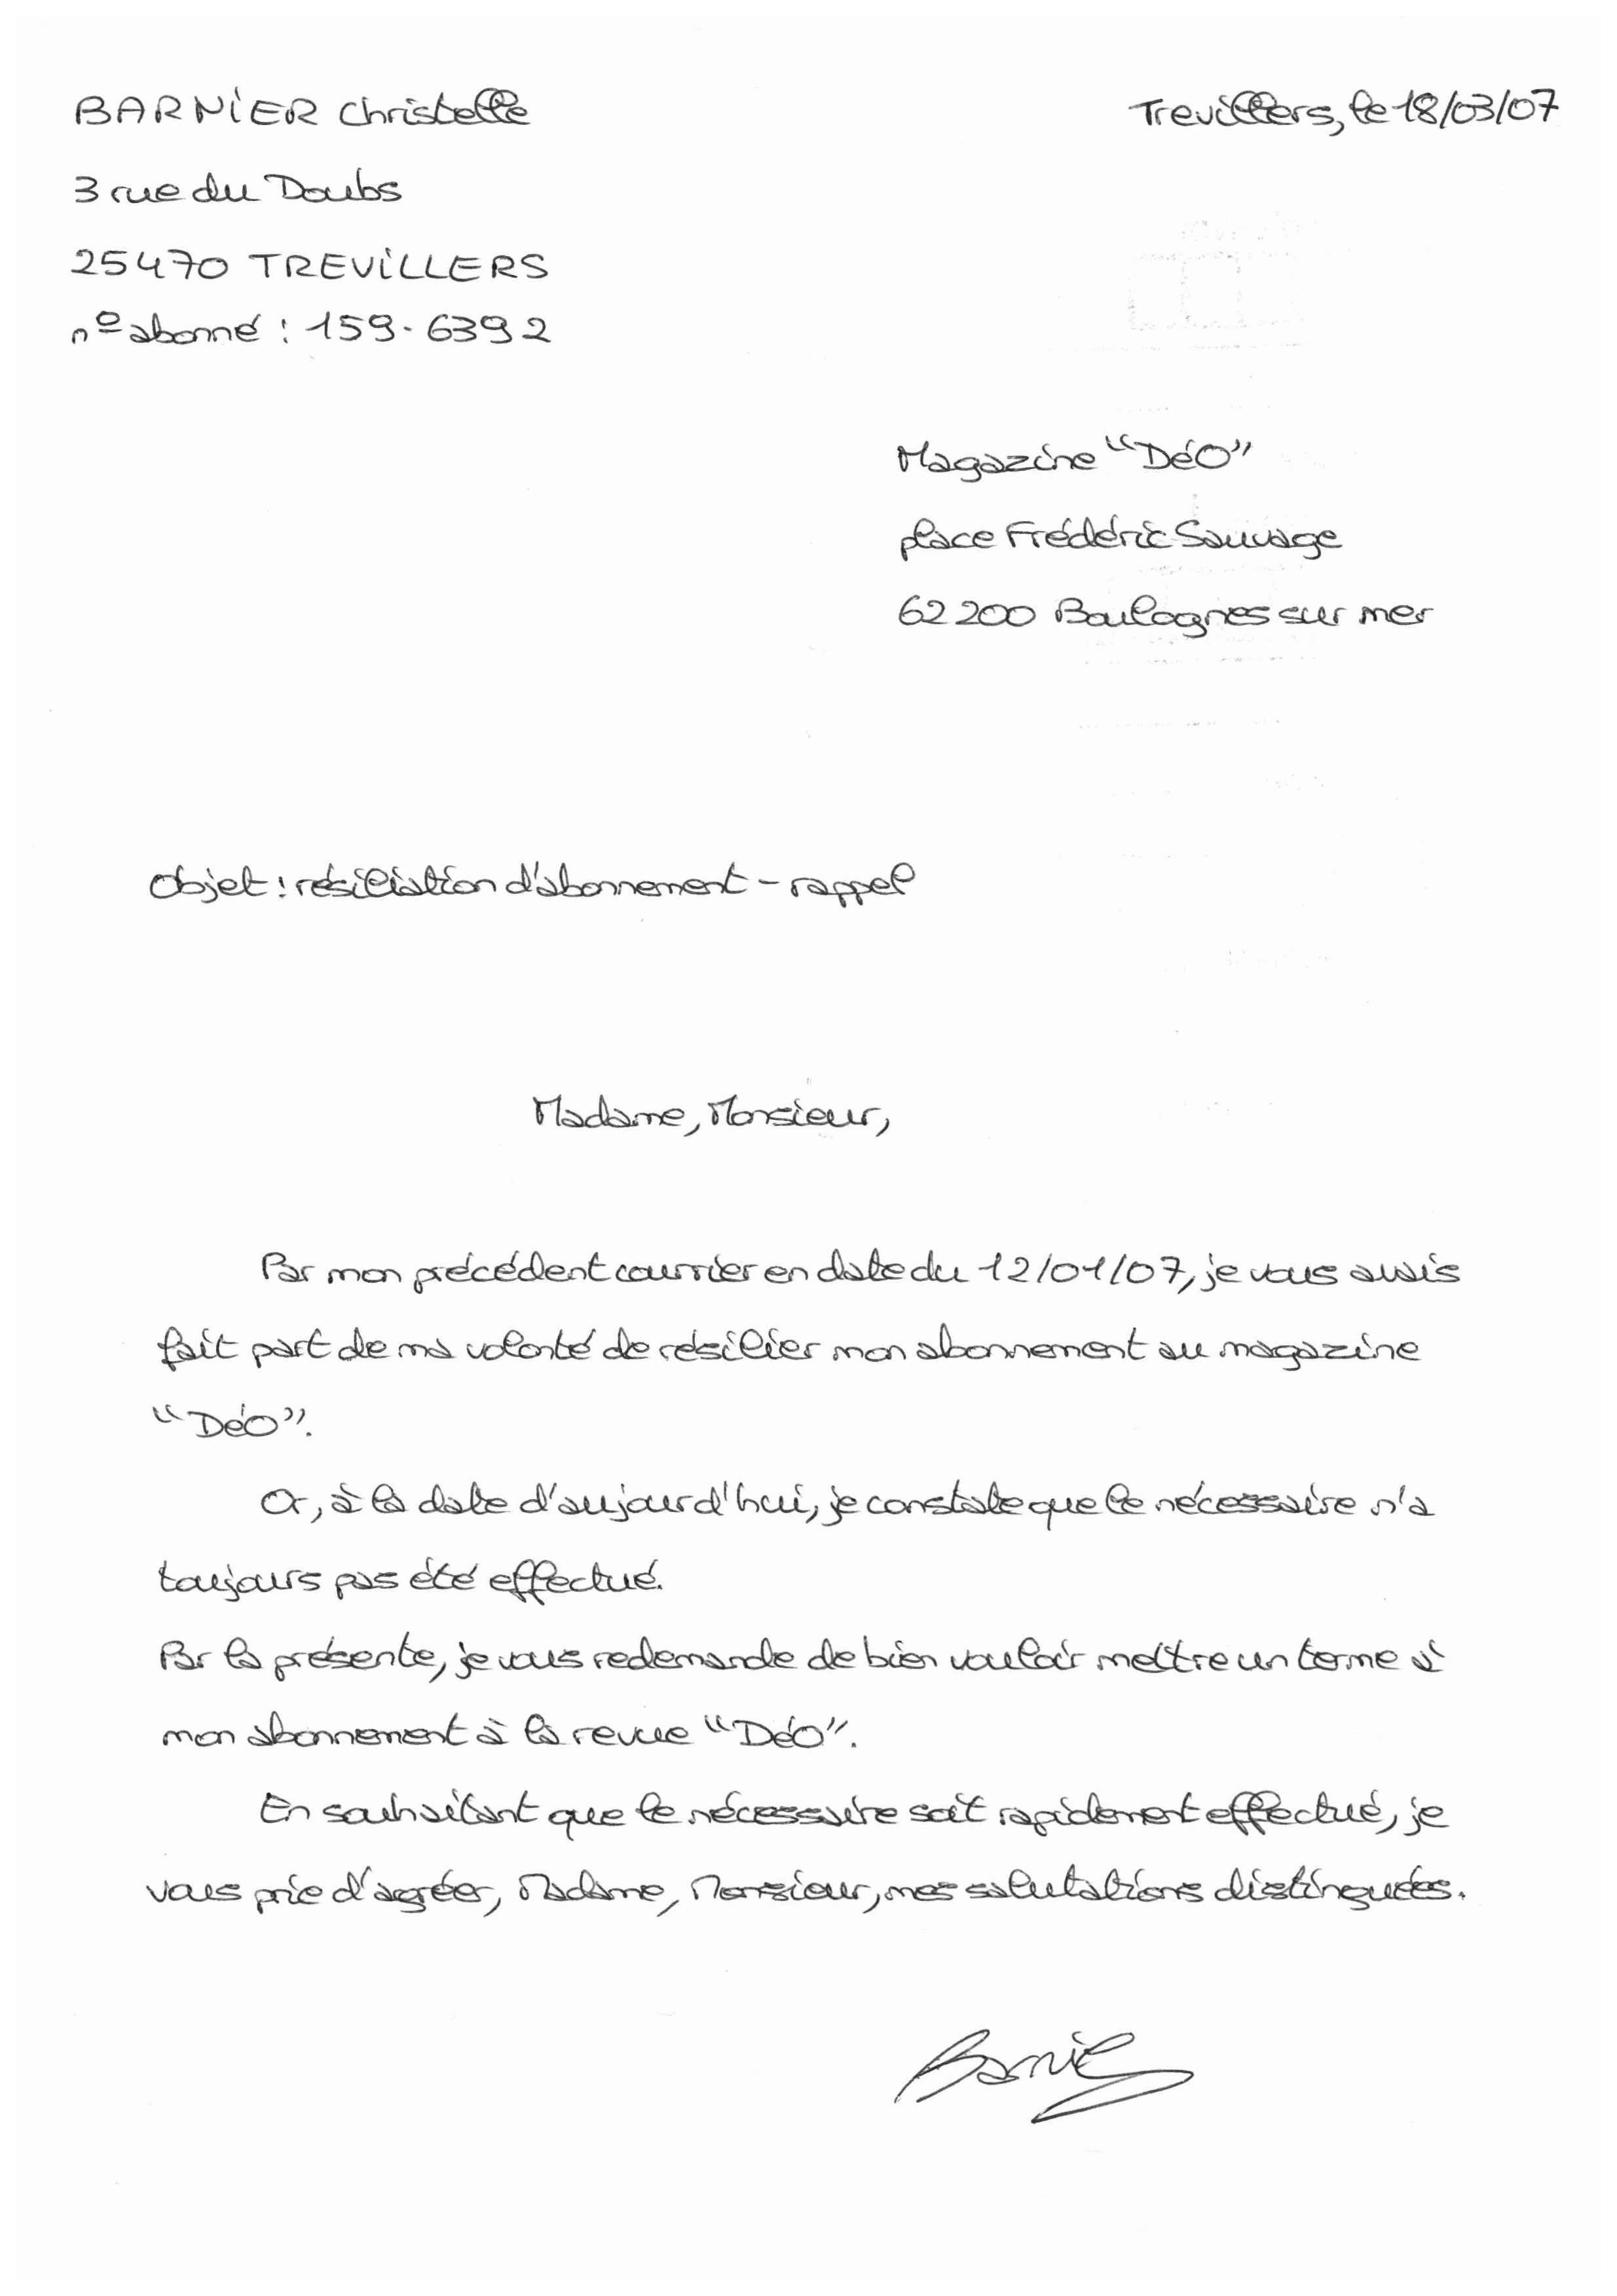 BARNIER Christelle
Trevillers, le 18/03/07
3 rue du Doubs
25470 TREVILLERS
n° abonné : 159.6392
Magazine "DéO"
place Frédéric Sauvage
62200 Boulognes sur mer
Objet : résiliation d'abonnement - rappel
Madame, Monsieur,
Par mon précédent courrier en date du 12/01/07, je vous avais
fait part de ma volonté de résilier mon abonnement au magazine
"DéO".
Or, à la date d'aujourd'hui, je constate que le nécessaire n'a
toujours pas été effectué.
Par la présente, je vous redemande de bien vouloir mettre un terme à
mon abonnement à la revue "DéO".
En souhaitant que le nécessaire soit rapidement effectué, je
vous prie d'agréer, Madame, Monsieur, mes salutations distinguées.